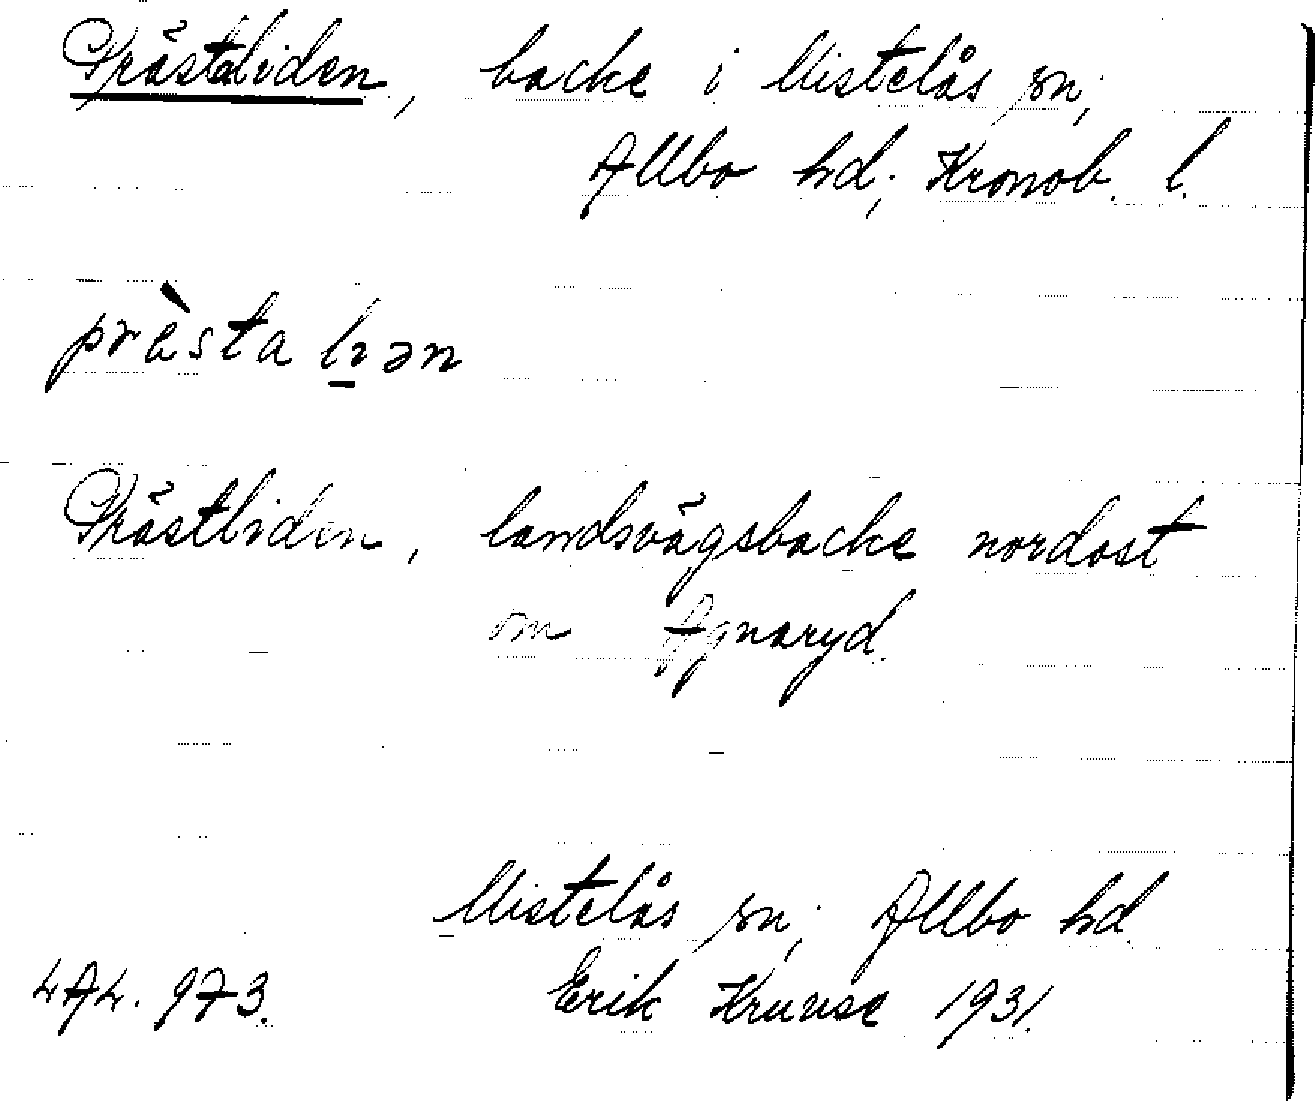 Prästaliden, backe i Mistelås sn;
Allbo hd; Kronob. l.
prästa lıən
Prästliden, landsvägsbacke nordost
om Agnaryd.
Mistelås sn; Allbo hd.
Erik Kruuse 1931.